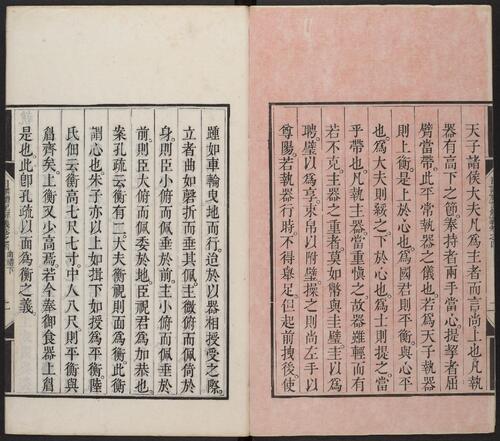 天子諸侯大夫凡爲主者而言尚上也凡執
器有高下之節奉持者兩手當心提挈者屈
臂當帶此平常執器之儀也若爲天子執器
則上衡是上於心也爲國君則平衡與心平
也爲大夫則綏之下於心也爲士則提之當
乎帶也凡執主器當重愼之故器雖輕而有
若不克主器之重者莫如幣與圭璧主以爲
聘璧以爲享束帛以附璧操之則尚左手以
尊陽若執器行時不得舉足但起前拽後使
踵如車輪曳地而行迨於以器相授受之際
立者曲如磬折而垂其佩主微俯而佩倚於
身則臣小俯而佩垂於前主小俯而佩垂於
前則臣大俯而佩委於地臣視君爲加恭也
案孔疏云衡有二大夫衡視則面爲衡此衡
謂心也朱子亦以上如揖下如授爲平衡陸
氏佃云衡高七尺七寸中人八尺則平衡與
眉齊矣上衡又少高焉若今奉御食器上眉
是也此卽孔疏以面爲衡之義